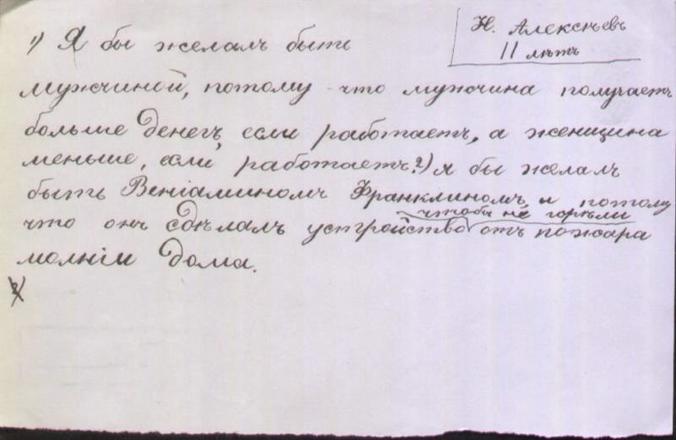 Н. Алексѣевъ
11 лѣтъ
1) Я бы желалъ быть
мужчиной, потому что мужчина получаетъ
больше денегъ, если работаетъ, а женщина
меньше, если работаетъ. 2) Я бы желалъ
быть Веніаминомъ Франклиномъ, и потому
чтобы не горѣли
что онъ сдѣлалъ устройство отъ пожара
молніи дома.